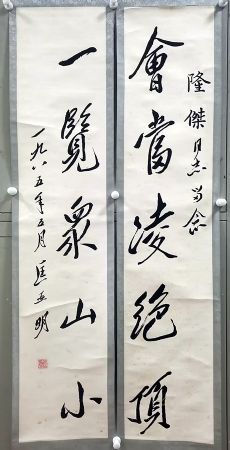 隆傑同志留念
會當凌絶頂
一覽眾山小
一九八五年五月匡亞明